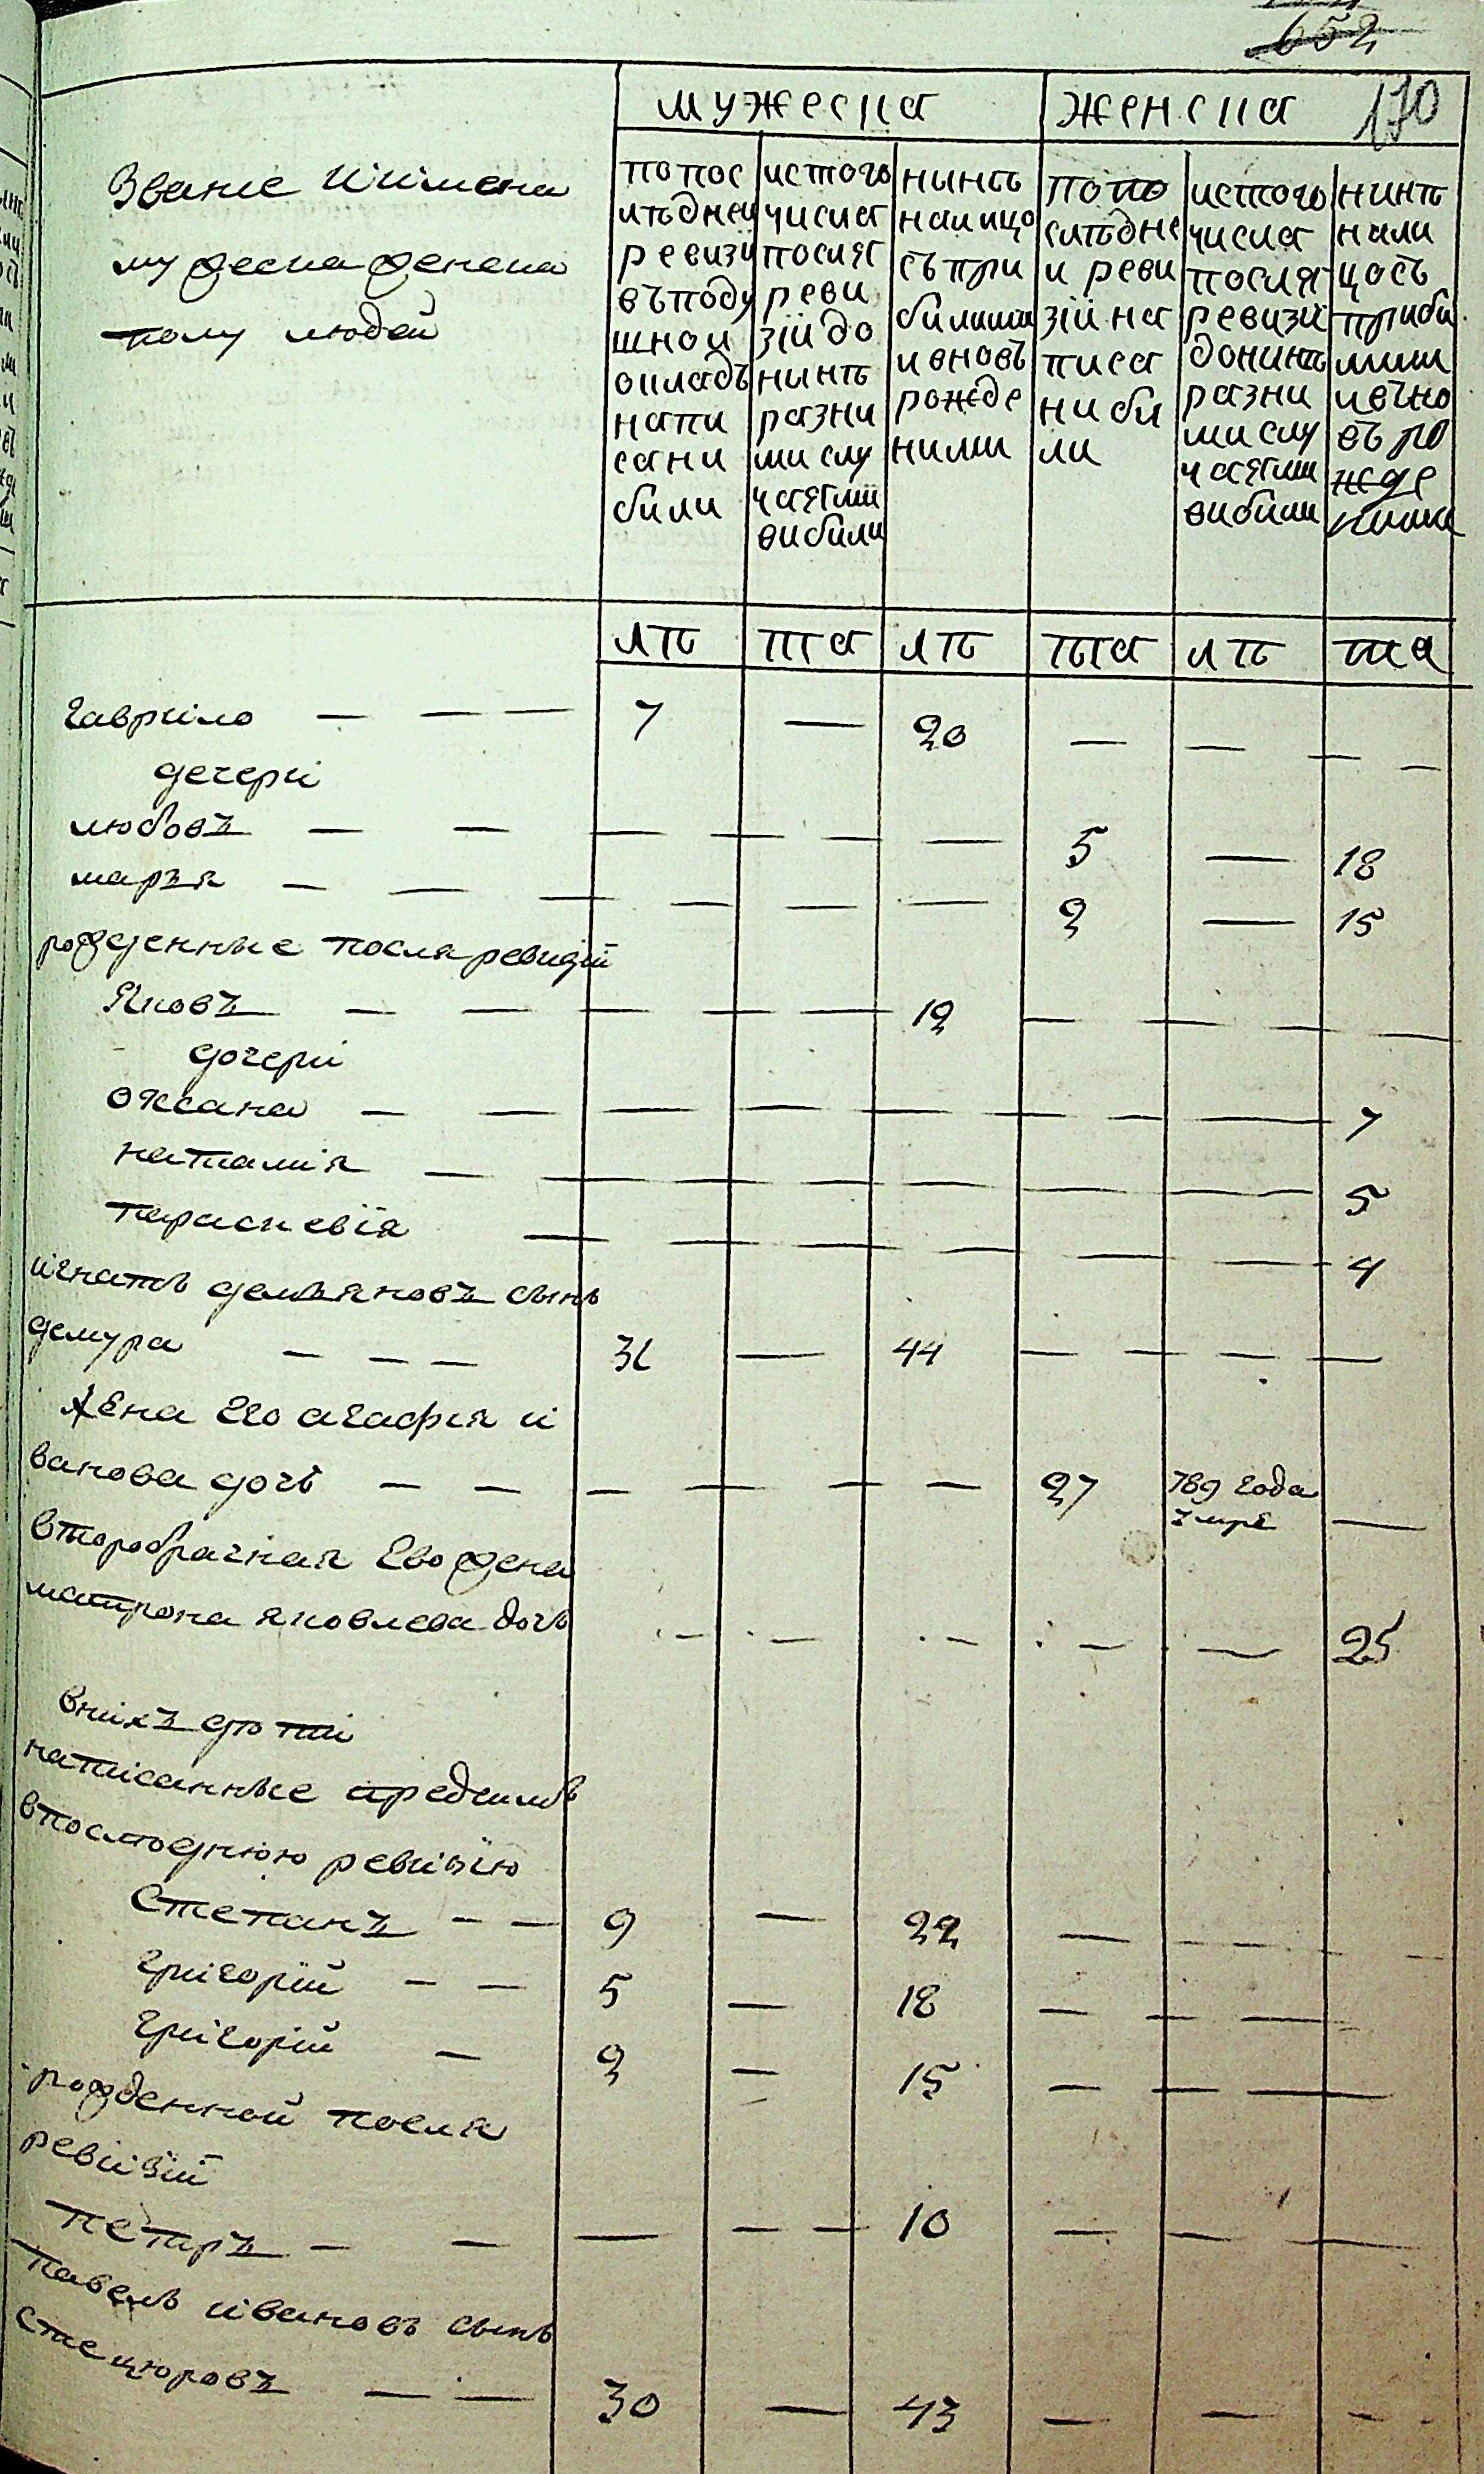 652
170
мужеска
женска
Звание и имена
мужеска женска
полу людей
по пос
лѣдней
ревизи
въ поду
шной
окладъ
напи
сани
били
ис того
числа
посля
реви
зій до
нинѣ
разни
ми слу
чаями
вибили
нынѣ
налицо
съ при
билими
и вновь
рожде
ними
по по
слѣдне
и реви
зій на
писа
ни би
ли
ис того
числа
посля
ревизи
до нинѣ
разни
ми слу
чаями
вибили
нинѣ
нали
цось
приби
лими
и вно
въ ро
жде
ними
лѣ
та
лѣ
та
лѣ
та
гаврило — — — 7 — 20 — — — —
дечери
любовъ — — — — — — 5 — 18
маръя — — — — — — 2 — 15
рожденные посля ревизій
Яковъ — — — — — 12 — — — —
дочери
оксана — — — — — — — — 7
наталия — — — — — — — — 5
парасковія — — — — — — — 4
игнатъ демъяновъ сынъ
демура — — — 31 — 44 — — — —
Жена его агафия и
ванова дочь — — — — — — 27 789 года —
умре
второбрачная Его жена
матрона яковлева дочь — — — — — 25
в них дѣти
написанные предъ симъ
в послѣднюю ревизію
Степанъ — — 9 — 22 — — — — —
григорій — — 5 — 18 — — —
григорій — 2 — 15 — — — —
рожденной посля
ревизій
петръ — — — — — 10 — — —
павелъ ивановъ сынъ
стецюровъ — — 30 — 43 — — — —